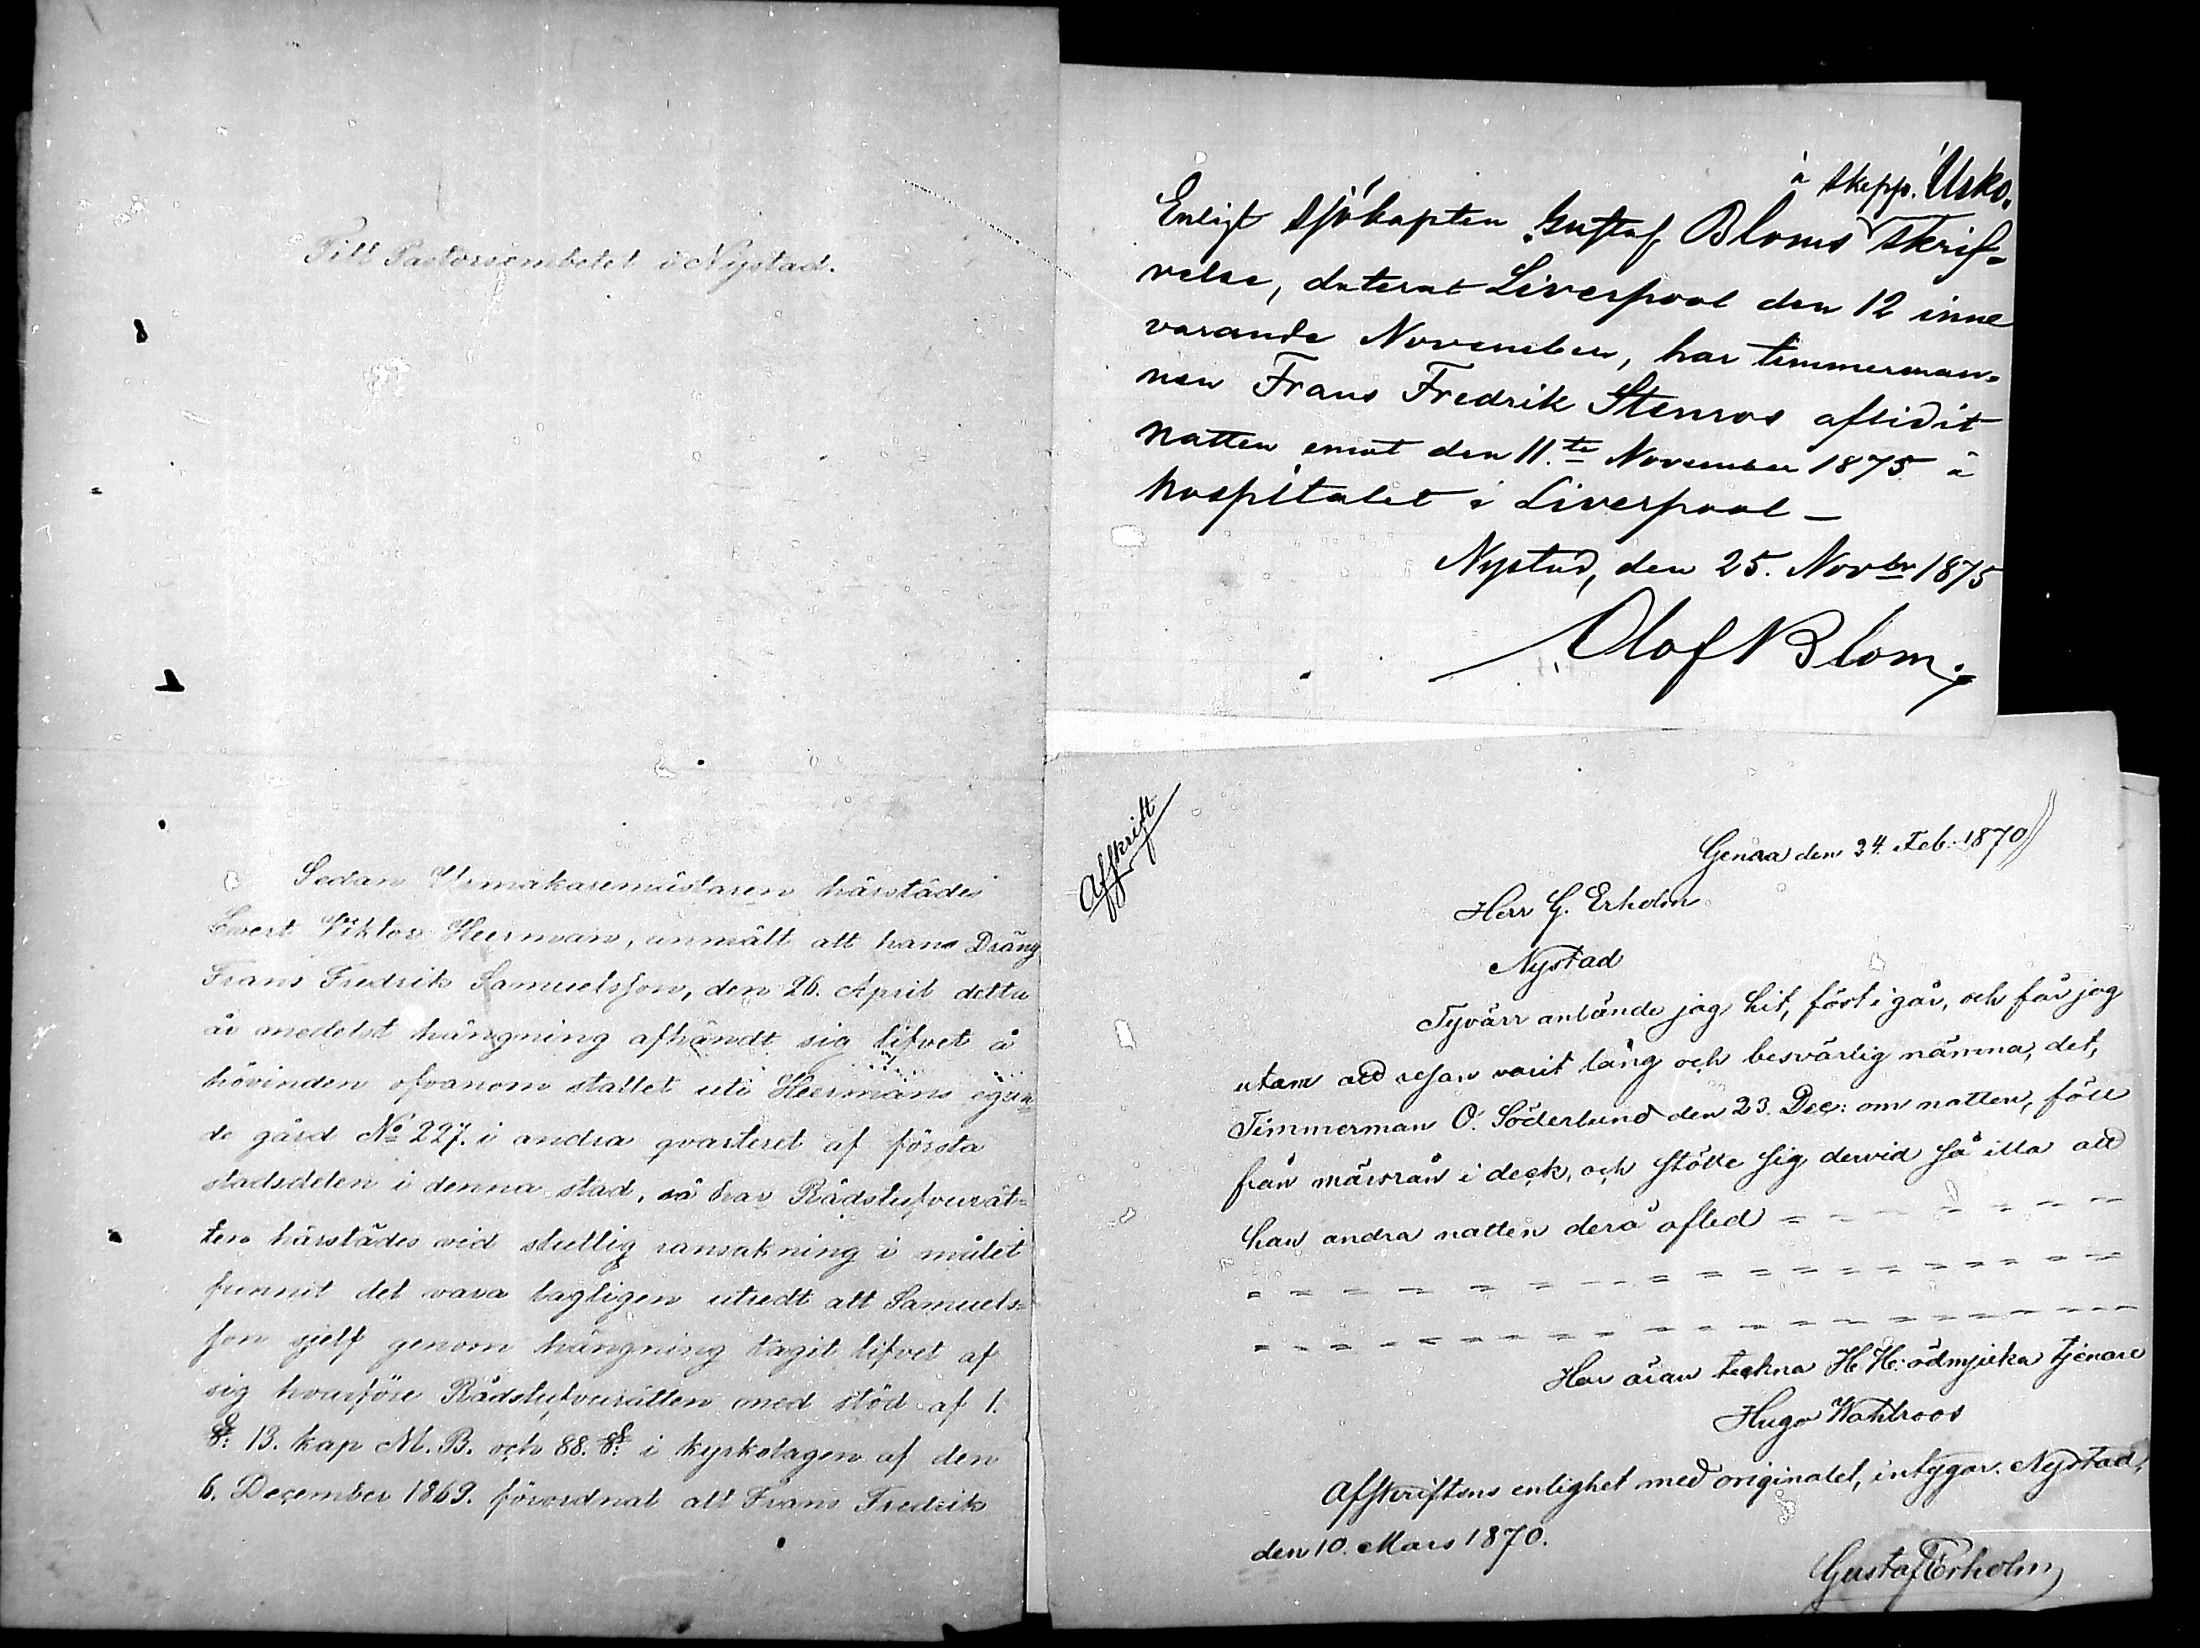 Till Pastorsembetet i Nystad.
Sedan Urmakaremästaren härstädes
Evert Viktor Heerman, anmält att hans Dräng
Frans Fredrik Samuelsson, den 26. April detta
år medelst hängning afhändt sig lifvet å
hövinden ofvanom stallet uti Heermans egan-
de gård No 227. i andra qvarteret af första
stadsdelen i denna stad, så har Rådstufvurät-
ten härstädes vid ställig ransakning i målet
funnit det vara lagligen utredt att Samuels-
son sjelf genom hängning tagit lifvet af
sig hvarföre Rådstufvurätten med stöd af 1.
§. 13. kap M. B. och 88. §. i kyrkolagen af den
6. December 1869. förordnat att Frans Fredrik
å skepp. Usko.
Enligt sjökapten Gustaf Bloms skrif-
velse, daterat Liverpool den 12 inne
varande November, har timmerman-
nen Frans Fredrik Stenros aflidit
natten emot den 11.te November 1875 å
hospitalet i Liverpool –
Nystad, den 25. Novbr 1875
Olof Blom.
Afskrift
Genoa den 24. Feb. 1870
Herr G. Erholm
Nystad
Tyvärr anlände jag hit, först i går, och får jag
utom att resan varit lång och besvärlig nämna, det,
Timmerman O. Söderlund den 23. Dec: om natten, föll
från märsrån i deck, och stötte sig dervid så illa att
han andra natten derå afled
Har äran teckna H. H: ödmjuka tjenare
Hugo Wahlroos
Afskriftens enlighet med originalet, intygar. Nystad,
den 10. Mars 1870.
Gustaf Erholm